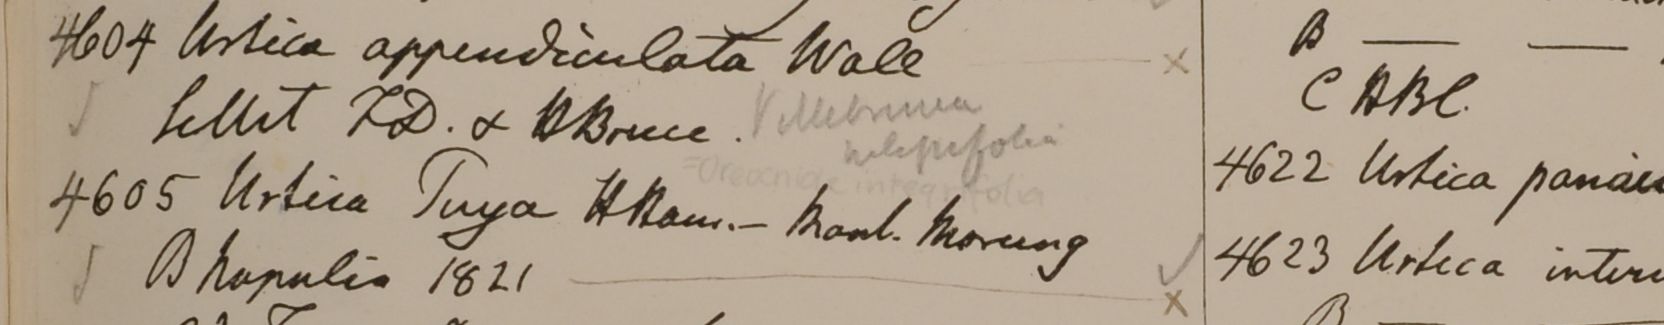 4604 Urtica appendiculata Wall
Sillet F.D. & HBruce. Villebrunea
integrifolia
=Oreocnide integrifolia
4605 Urtica Tuya HHam.— Morung
B Napalia 1821
B — —
C HBC.
4622 Urtica
4623 Urtica
B —